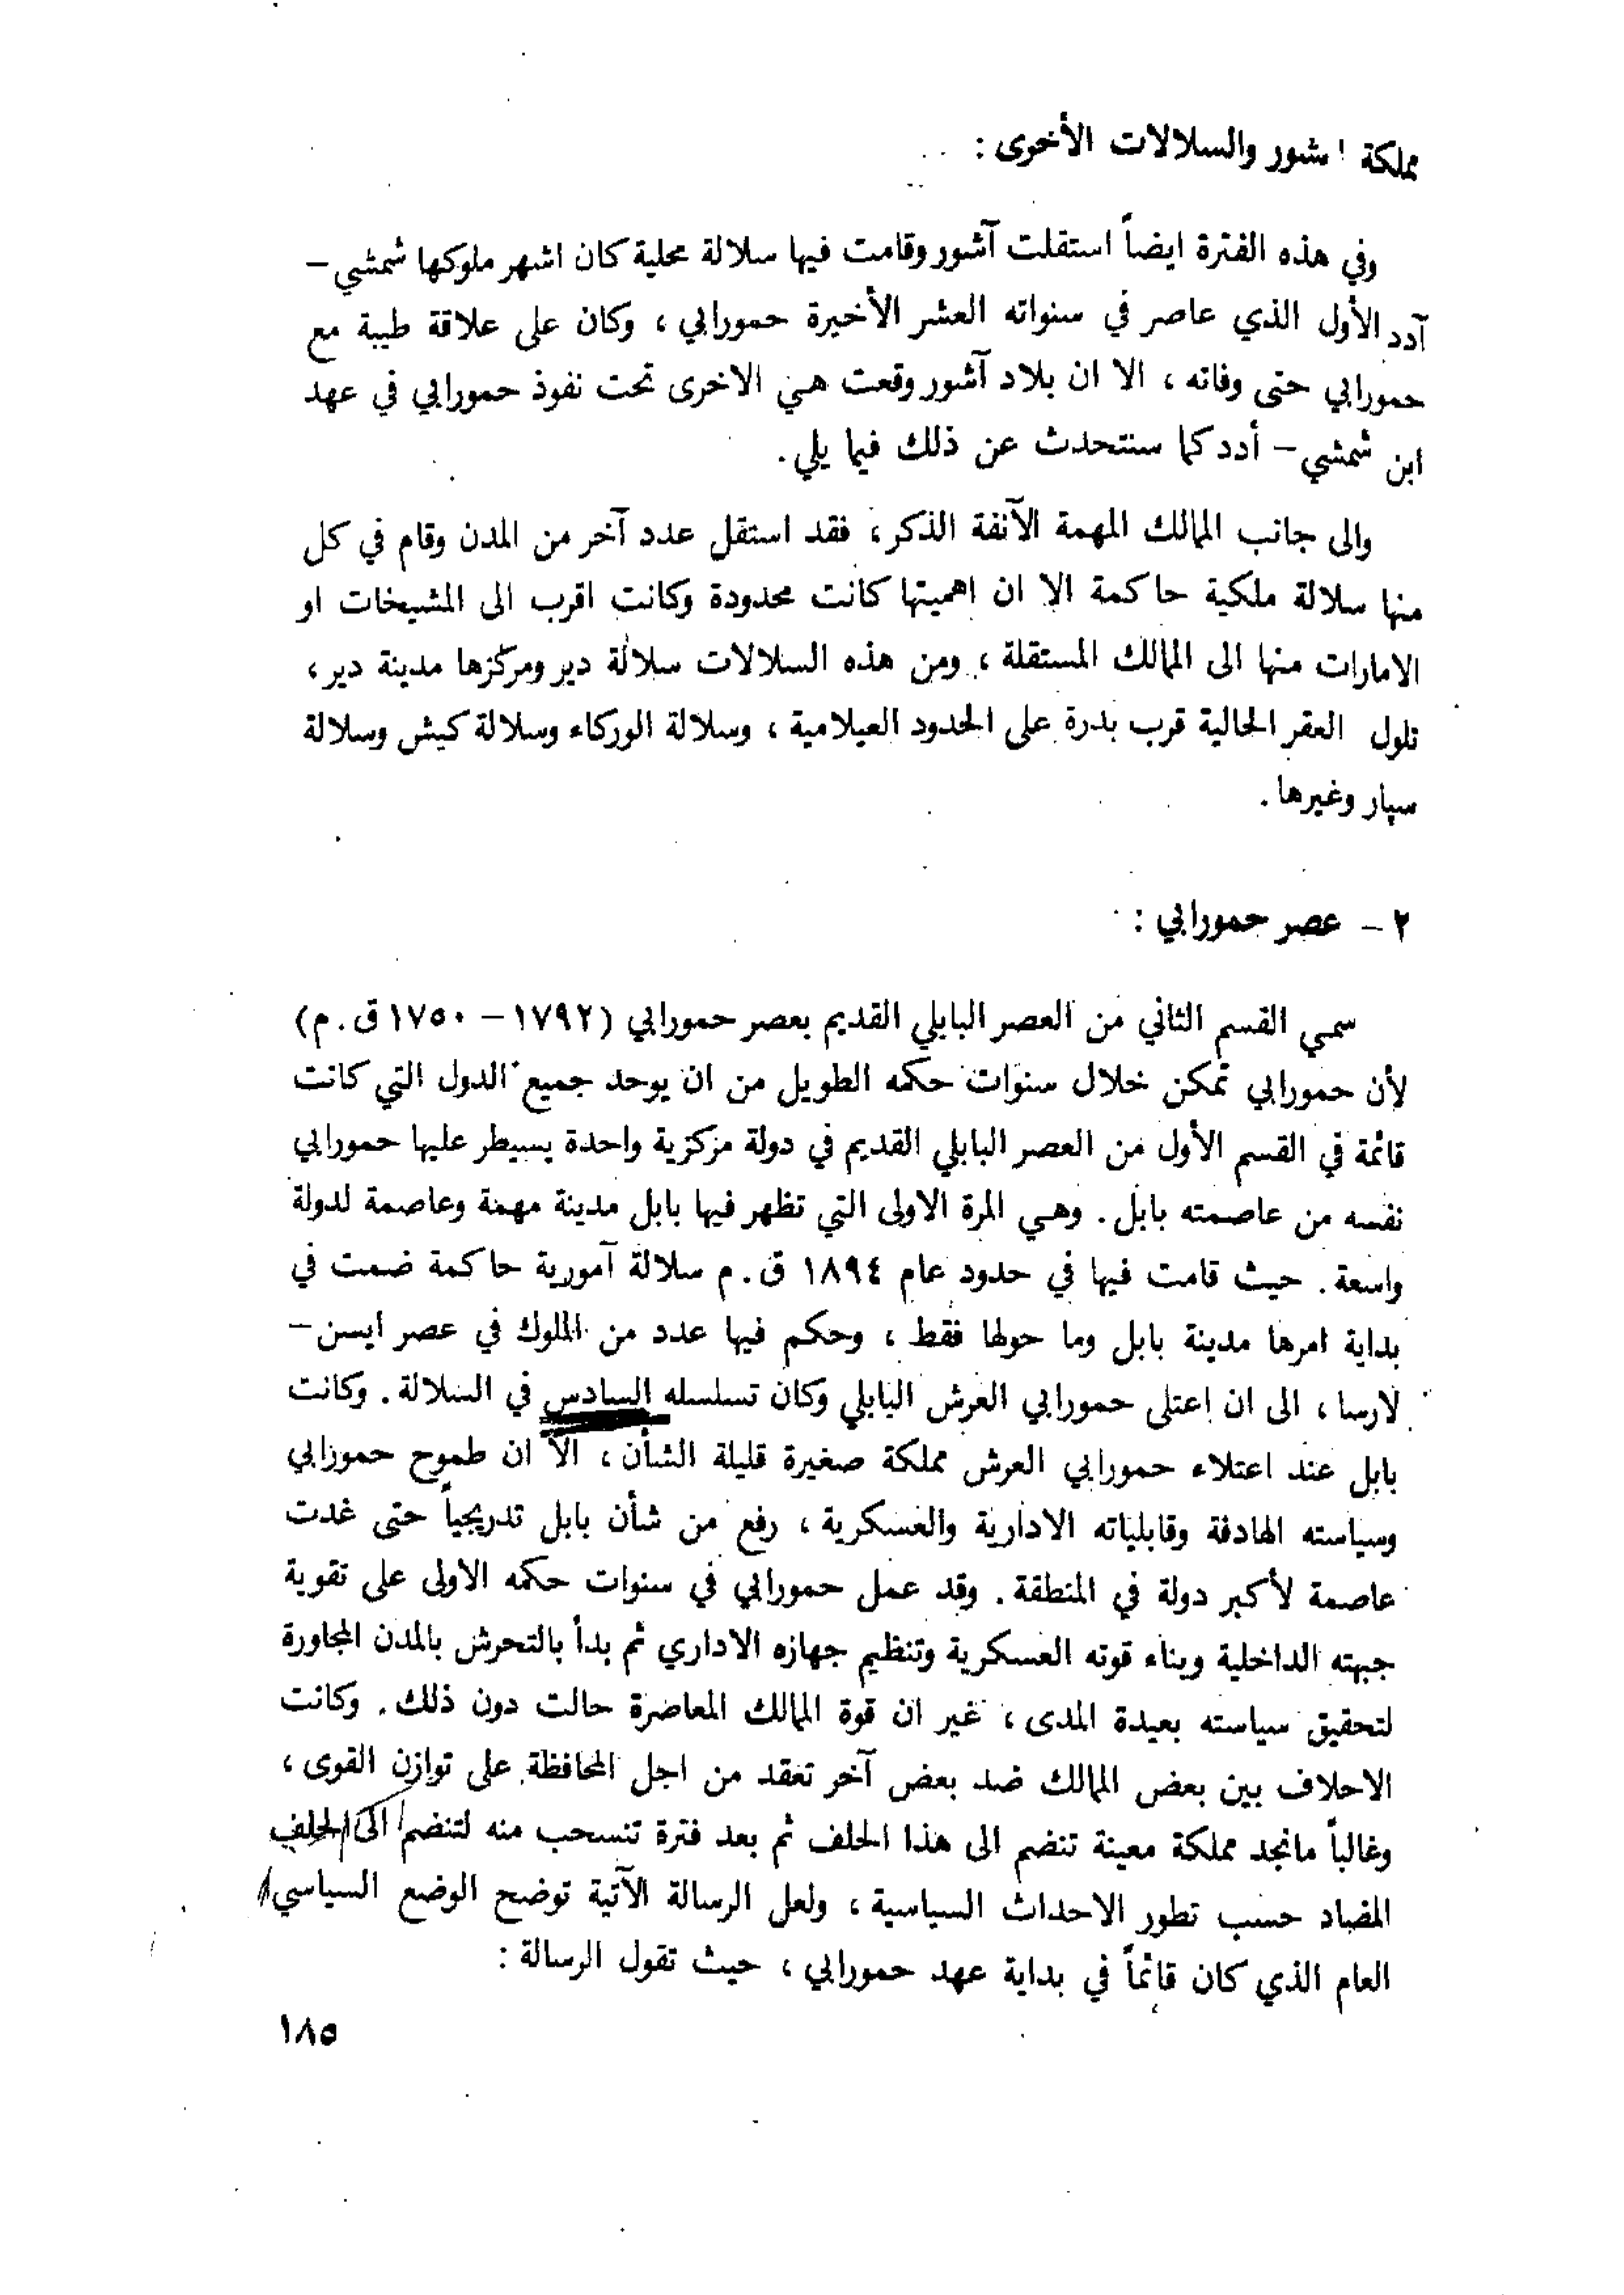 مملكة اشور والسلالات الأخرى :
وفي هذه الفترة ايضاً استقلت آشور وقامت فيها سلالة محلية كان اشهر ملوكها شمشي –
آدد الأول الذي عاصر في سنواته العشر الأخيرة حمورابي ، وكان على علاقة طيبة مع
حمورابي حتى وفاته ، الا ان بلاد آشور وقعت هي الاخرى تحت نفوذ حمورابي في عهد
ابن شمشي – أدد كما سنتحدث عن ذلك فيما يلي .
والى جانب الممالك المهمة الآنفة الذكر ، فقد استقل عدد آخر من المدن وقام في كل
منها سلالة ملكية حاكمة الا ان اهميتها كانت محدودة وكانت اقرب الى المشيخات او
الامارات منها الى الممالك المستقلة ، ومن هذه السلالات سلالة دير ومركزها مدينة دير ،
تلول العقر الحالية قرب بدرة على الحدود العيلامية ، وسلالة الوركاء وسلالة كيش وسلالة
سپار وغيرها .
٢ – عصر حمورابي :
سمي القسم الثاني من العصر البابلي القديم بعصر حمورابي (١٧٩٢ – ١٧٥٠ ق . م)
لأن حمورابي تمكن خلال سنوات حكمه الطويل من ان يوحد جميع الدول التي كانت
قائمة في القسم الأول من العصر البابلي القديم في دولة مركزية واحدة يسيطر عليها حمورابي
نفسه من عاصمته بابل . وهي المرة الاولى التي تظهر فيها بابل مدينة مهمة وعاصمة لدولة
واسعة . حيث قامت فيها في حدود عام ١٨٩٤ ق . م سلالة آمورية حاكمة ضمت في
بداية امرها مدينة بابل وما حولها فقط ، وحكم فيها عدد من الملوك في عصر ايسن –
لارسا ، الى ان اعتلى حمورابي العرش البابلي وكان تسلسله السادس في السلالة . وكانت
بابل عند اعتلاء حمورابي العرش مملكة صغيرة قليلة الشأن ، الا ان طموح حمورابي
وسياسته الهادفة وقابلياته الادارية والعسكرية ، رفع من شأن بابل تدريجياً حتى غدت
عاصمة لأكبر دولة في المنطقة . وقد عمل حمورابي في سنوات حكمه الاولى على تقوية
جبهته الداخلية وبناء قوته العسكرية وتنظيم جهازه الاداري ثم بدأ بالتحرش بالمدن المجاورة
لتحقيق سياسته بعيدة المدى ، غير ان قوة الممالك المعاصرة حالت دون ذلك . وكانت
الاحلاف بين بعض الممالك ضد بعض آخر تعقد من اجل المحافظة على توازن القوى ،
وغالباً مانجد مملكة معينة تنضم الى هذا الحلف ثم بعد فترة تنسحب منه لتنضم الى الحلف
المضاد حسب تطور الاحداث السياسية ، ولعل الرسالة الآتية توضح الوضع السياسي
العام الذي كان قائماً في بداية عهد حمورابي ، حيث تقول الرسالة :
١٨٥